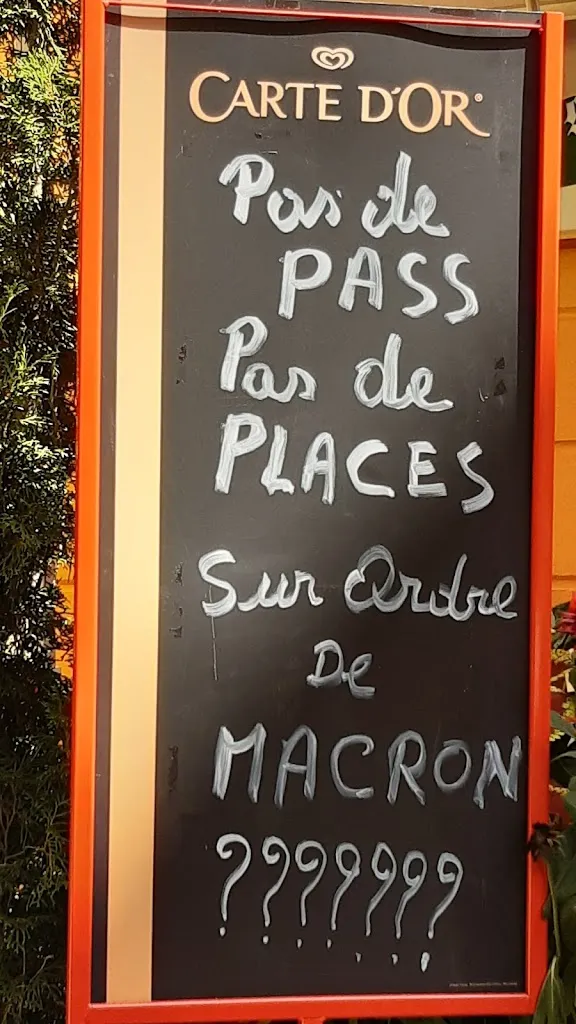 CARTE D'OR®
Pas de
PASS
Pas de
PLACES
Sur Ordre
De
MACRON
???????